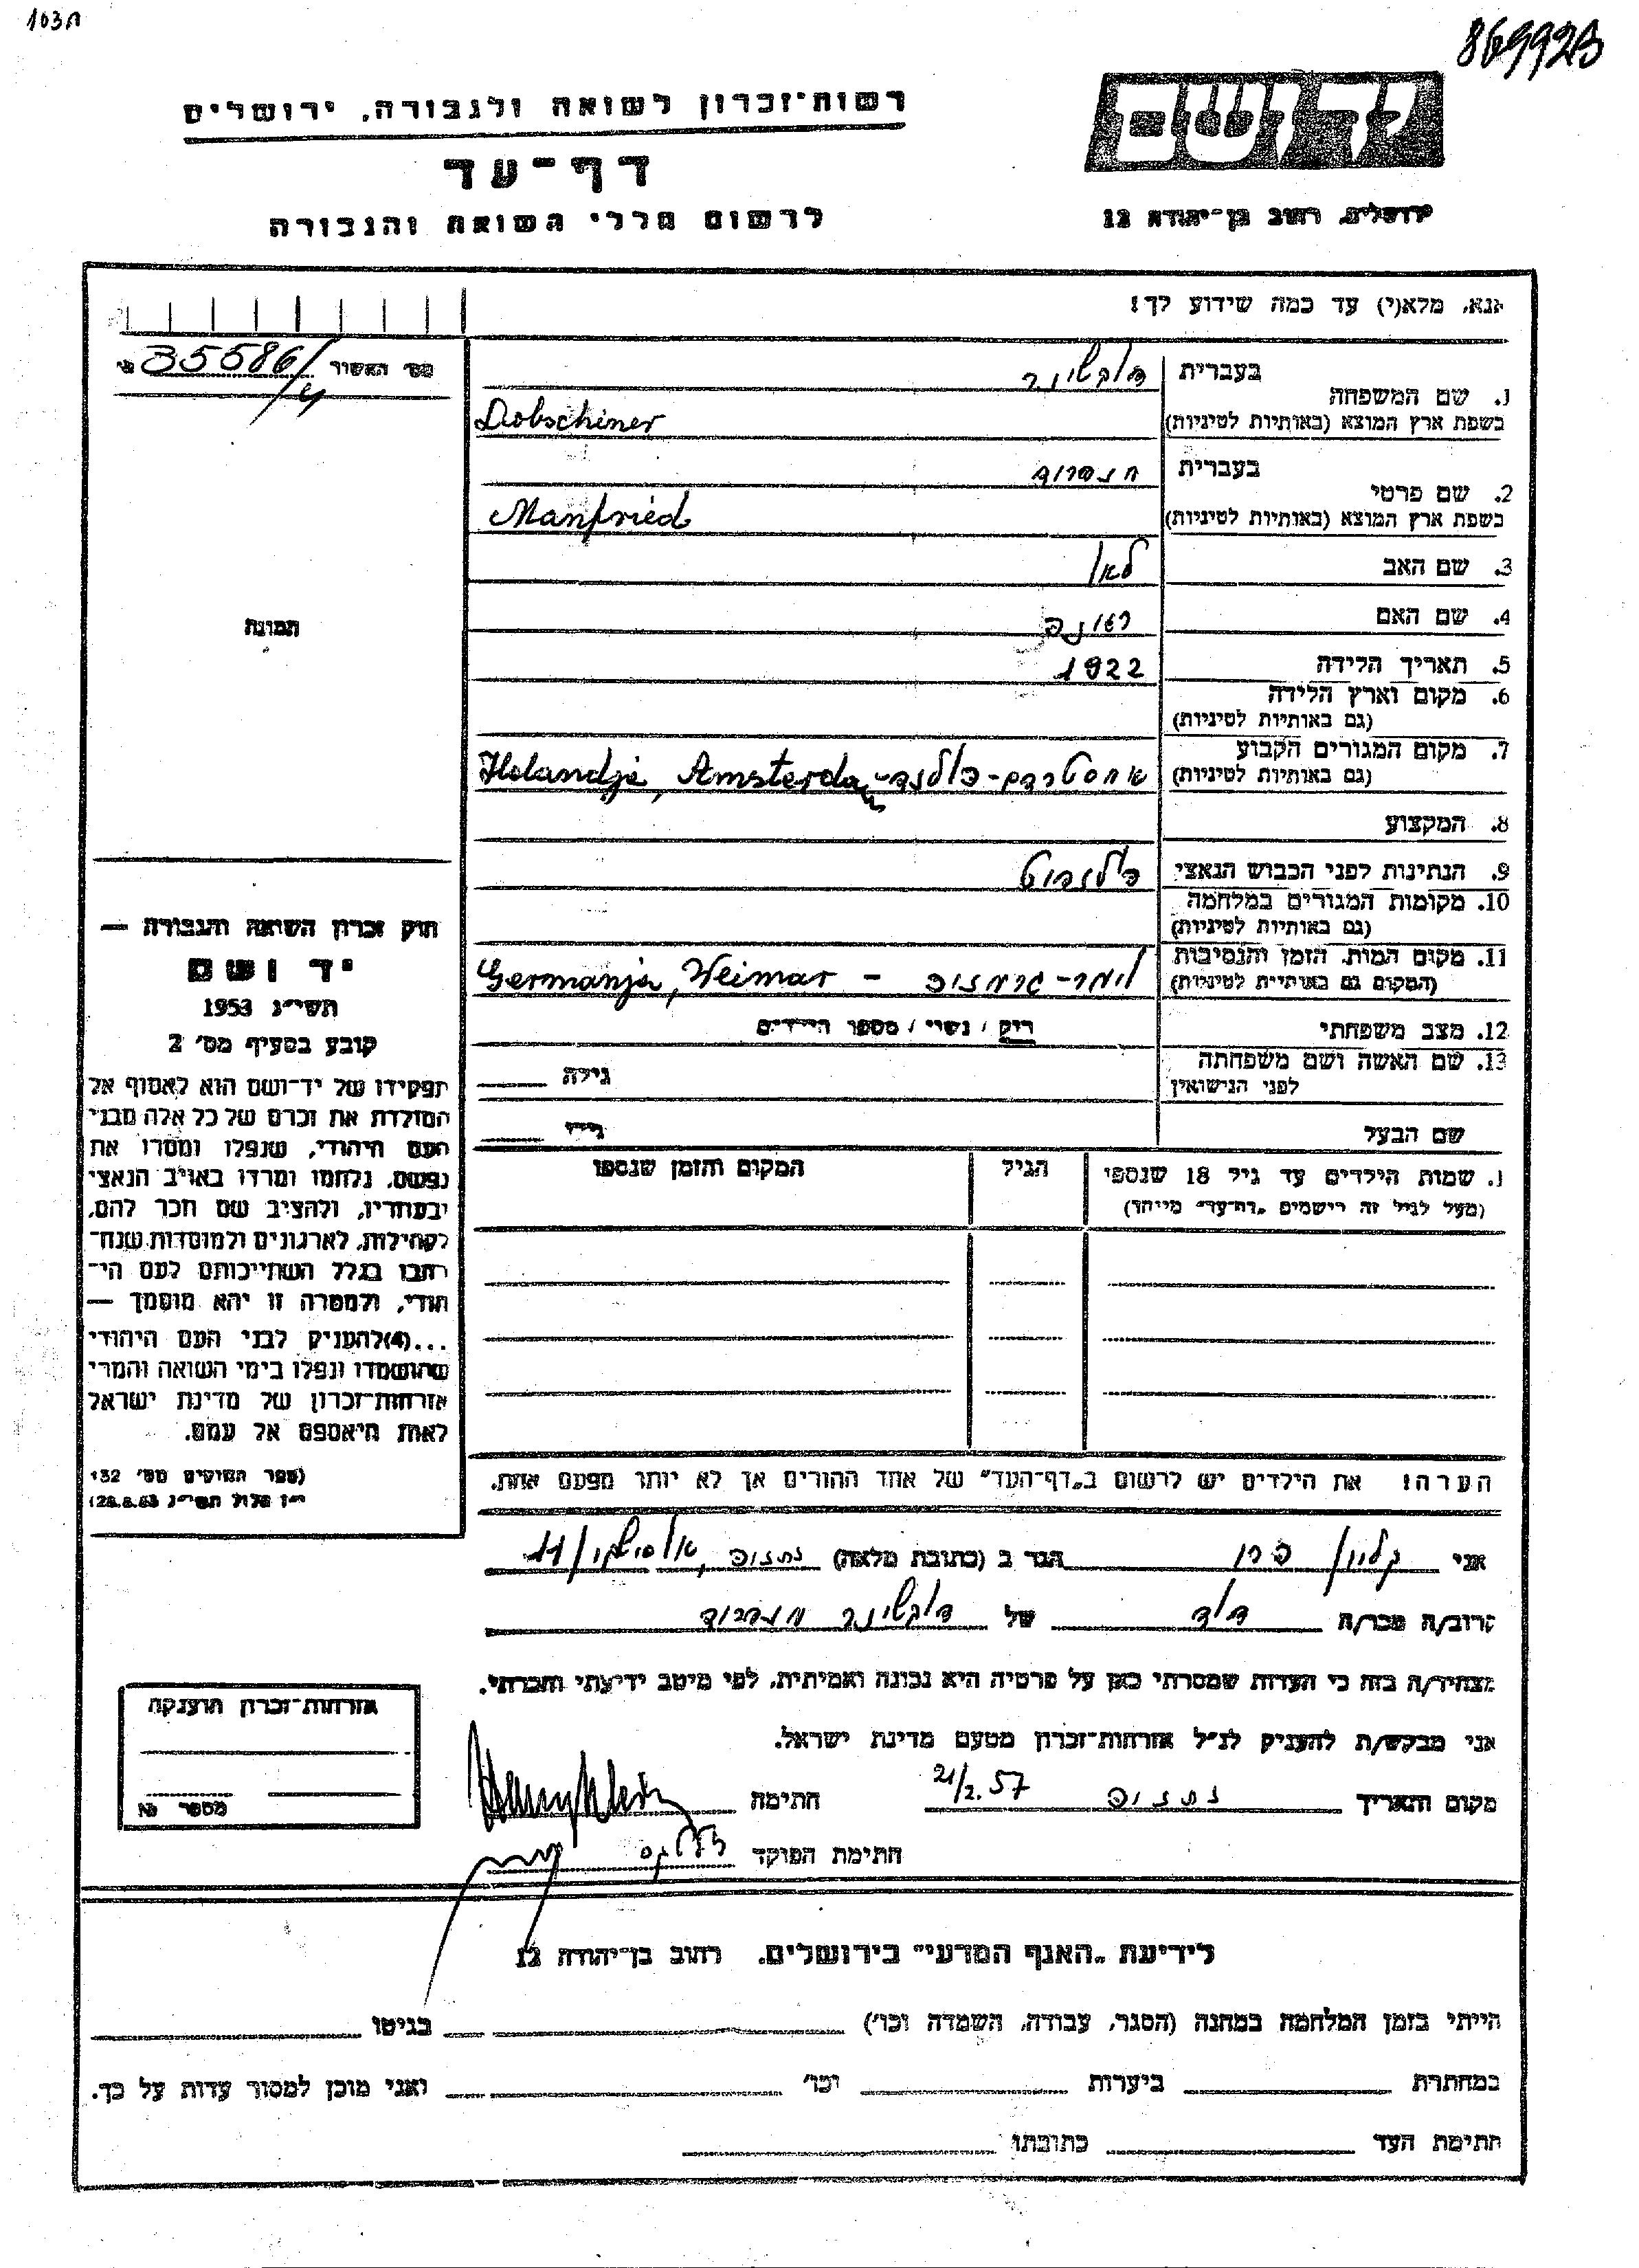 103ח
869923
רשות־זכרון לשואה ולגבורה, ירושלים
דף־עד
לרשום חללי השואה והגבורה
יד ושם
ירושלים, רחוב בן־יהודה 12
אנא, מלא(י) עד כמה שידוע לך!
מס׳ האשור 35586/
1. שם המשפחה
בעברית דובשינר
בשפת ארץ המוצא (באותיות לטיניות) Dobschiner
2. שם פרטי
בעברית
בשפת ארץ המוצא (באותיות לטיניות) Manfried
3. שם האב לאו
4. שם האם
5. תאריך הלידה 1922
6. מקום וארץ הלידה
(גם באותיות לטיניות)
7. מקום המגורים הקבוע
(גם באותיות לטיניות) אמסטרדם־הולנד־ Holandje, Amsterdam
8. המקצוע
9. הנתינות לפני הכבוש הנאצי
10. מקומות המגורים במלחמה
(גם באותיות לטיניות)
11. מקום המות, הזמן והנסיבות
(המקום גם באותיות לטיניות) וימר־גרמניה – Germanja, Weimar
12. מצב משפחתי רוק / נשוי / מספר הילדים
13. שם האשה ושם משפחתה
לפני הנישואין גילה
שם הבעל גילו
שמות הילדים עד גיל 18 שנספו
(מעל לגיל זה רישמים „דף־עד״ מייחד)
הגיל
המקום והזמן שנספו
תמונה
חוק זכרון השואה והגבורה —
יד ושם
תשי״ג 1953
קובע בסעיף מס׳ 2
תפקידו של יד־ושם הוא לאסוף אל
המולדת את זכרם של כל אלה מבני
העם היהודי, שנפלו ומסרו את
נפשם, נלחמו ומרדו באויב הנאצי
ובעוזריו, ולהציב שם וזכר להם,
לקהילות, לארגונים ולמוסדות שנח־
רבו בגלל השתייכותם לעם הי־
הודי, ולמטרה זו יהא מוסמך —
...(4) להעניק לבני העם היהודי
שהושמדו ונפלו בימי השואה והמרי
אזרחות־זכרון של מדינת ישראל
לאות היאספם אל עמם.
(ספר החוקים מס׳ 132
י״ז אלול תשי״ג 28.8.53)
הערה! את הילדים יש לרשום ב„דף־העד״ של אחד ההורים אך לא יותר מפעם אחת.
אני קליין הגר ב (כתובת מלאה) נתניה, 11
קרוב/ה מכר/ה דוד של דובשינר מנפריד
מצהיר/ה בזה כי העדות שמסרתי כאן על פרטיה היא נכונה ואמיתית, לפי מיטב ידיעתי והכרתי.
אני מבקש/ת להעניק לנ״ל אזרחות־זכרון מטעם מדינת ישראל.
מקום ותאריך נתניה 21/2.57 חתימה
חתימת הפוקד
אזרחות־זכרון הוענקה
מספר №
לידיעת „האגף המדעי״ בירושלים, רחוב בן־יהודה 12
הייתי בזמן המלחמה במחנה (הסגר, עבודה, השמדה וכו׳) בגיטו
במחתרת ביערות וכו׳ ואני מוכן למסור עדות על כך.
חתימת העד כתובתו